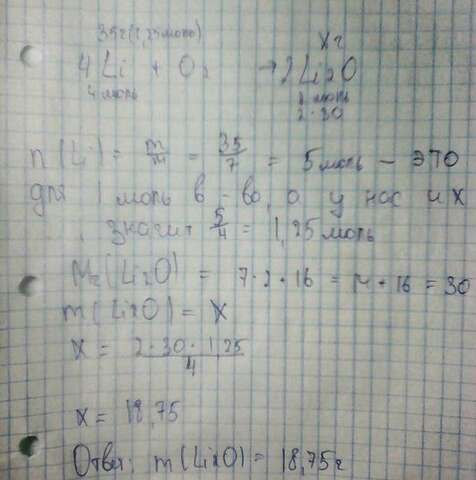 35г(1,25моль) xг
4Li + O₂ → 2Li₂O
4 моль 2·30
n(Li) = m/M = 35/7 = 5 моль – это
для 1 моль в-ва, а у нас их
, значит 5/4 = 1,25 моль
Mr(Li₂O) = 7·2·16 = 14+16 = 30
m(Li₂O) = x
x = 2·30·1,25/4
x = 18,75
Ответ: m(Li₂O) = 18,75г